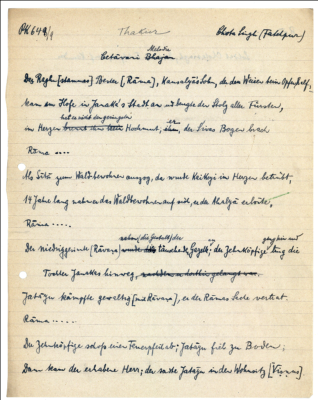 PK 649/1 Thakur Chota Singh (Fatehpur)
Melodie
Betāvari Bhajan
Des Raghu [stammes] Bester [, Rāma], Kausalyās Sohn, der dem Weisen beim Opfer half,
kam am Hofe in Janaks Stadt an
der Stolz aller Fürsten,
hat er nicht den geringsten
im Herzen Hochmut, er, der Śivas Bogen brach
Rāma ....
Als Sītā zum Waldbewohner auszog, da wurde Keikeyi im Herzen betrübt,
14 Jahre lang nahm er das Waldbewohner auf sich, er, der Ahalyā erlöste,
Rāma .....
nahm (die Gestalt) der
Der niedriggesinnte (Rāvana) der Zehnköpfige ging hin und
Tochter Janakas hinweg,
Jatāyu kämpfte gewaltig [mit Rāvana], er der Rāmas Seite vertrat
Rāma .....
Der Zehnköpfige schoß einen Feuerpfeil ab: Jatāyu fiel zu Boden;
Dann kam der erhabene Herr; der sandte Jatāyu in den Wohnsitz [Viṣṇus].